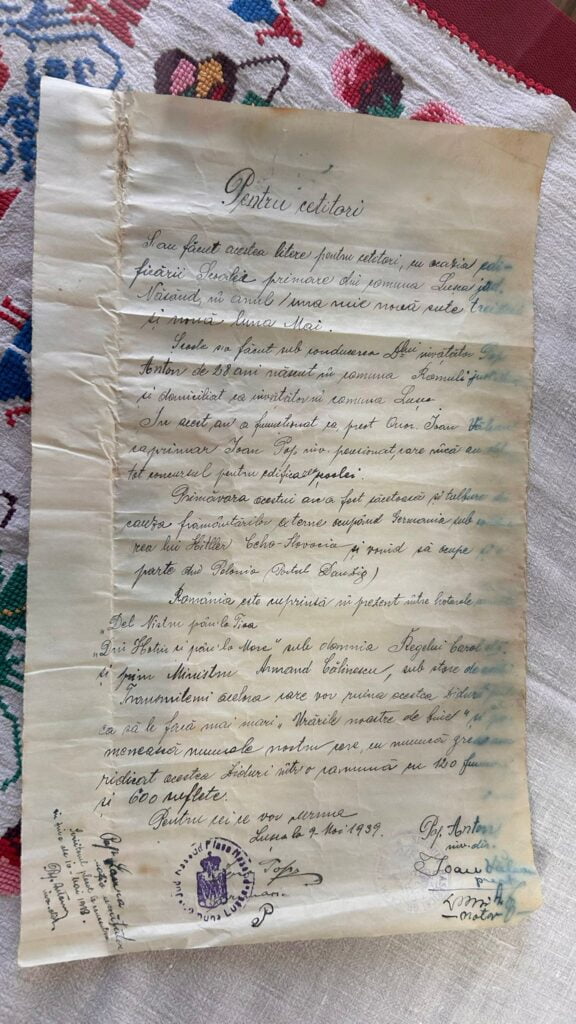 Pentru cetitori
S-au făcut acestea litere pentru cetitori, cu ocazia edi-
ficării Școalei primare din comuna Lușca jud.
Năsăud, în anul una mie nouă sute trei
și nouă luna Mai.
Școale s-a făcut sub conducerea Dlui învățător Pop
Anton de 28 ani născut în comuna Romuli
și domiciliat ca învățător în comuna Lușca
În acest an a funcționat ca preot Onor. Ioan
caprimar Ioan Pop inv. pensionat, care încă au
tot concursul pentru edificarea școlei.
Primăvara acestui an a fost săcetoasă și tulbure
cauza frământărilor externe ocupând Germania sub
rea lui Hittler Ceho-Slovacia și voind să ocupe
parte din Polonia (Portul Danzig)
România este cuprinsă în prezent între hotarele
"Del Nistru pân la Tisa
"Din Hotin si pân la Mare" sub domnia Regelui Carol
și prim Ministru Armand Călinescu, sub stare de
Transmitem acelora care vor ruina acestea ziduri
ca să le facă mai mari, Urările noastre de bine"
menească numele nostru care, cu muncă
ridicat acestea Ziduri într-o comună cu 120
și 600 suflete.
Pentru cei ce vor urma
Lușca la 9 Mai 1939.
Pop Anton
inv. dir.
Ioan
preot
Pop
notar
Pop
10 Mai 1918.
Pop Anton